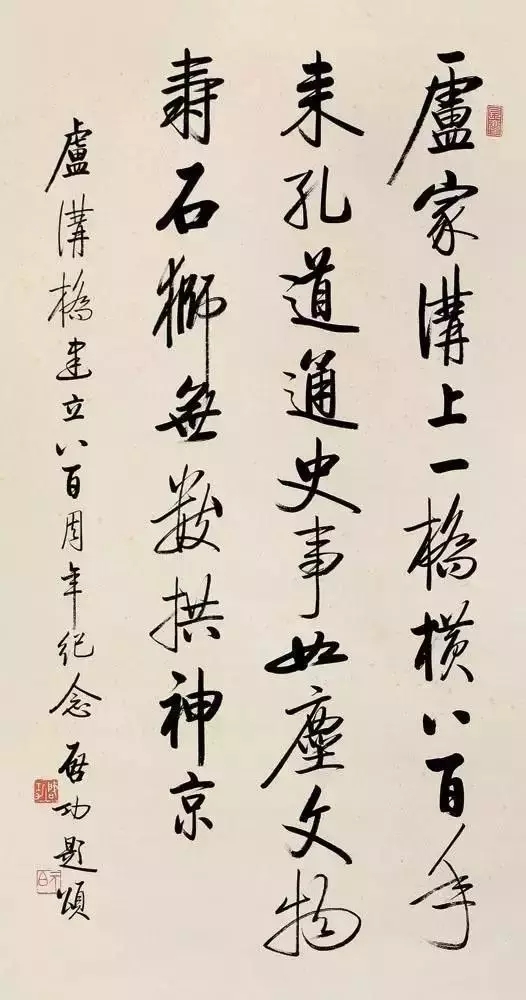 盧家溝上一橋橫八百年
来孔道通史事如塵文物
壽石獅無數拱神京
盧溝橋建立八百周年纪念 啓功題頌
啓功